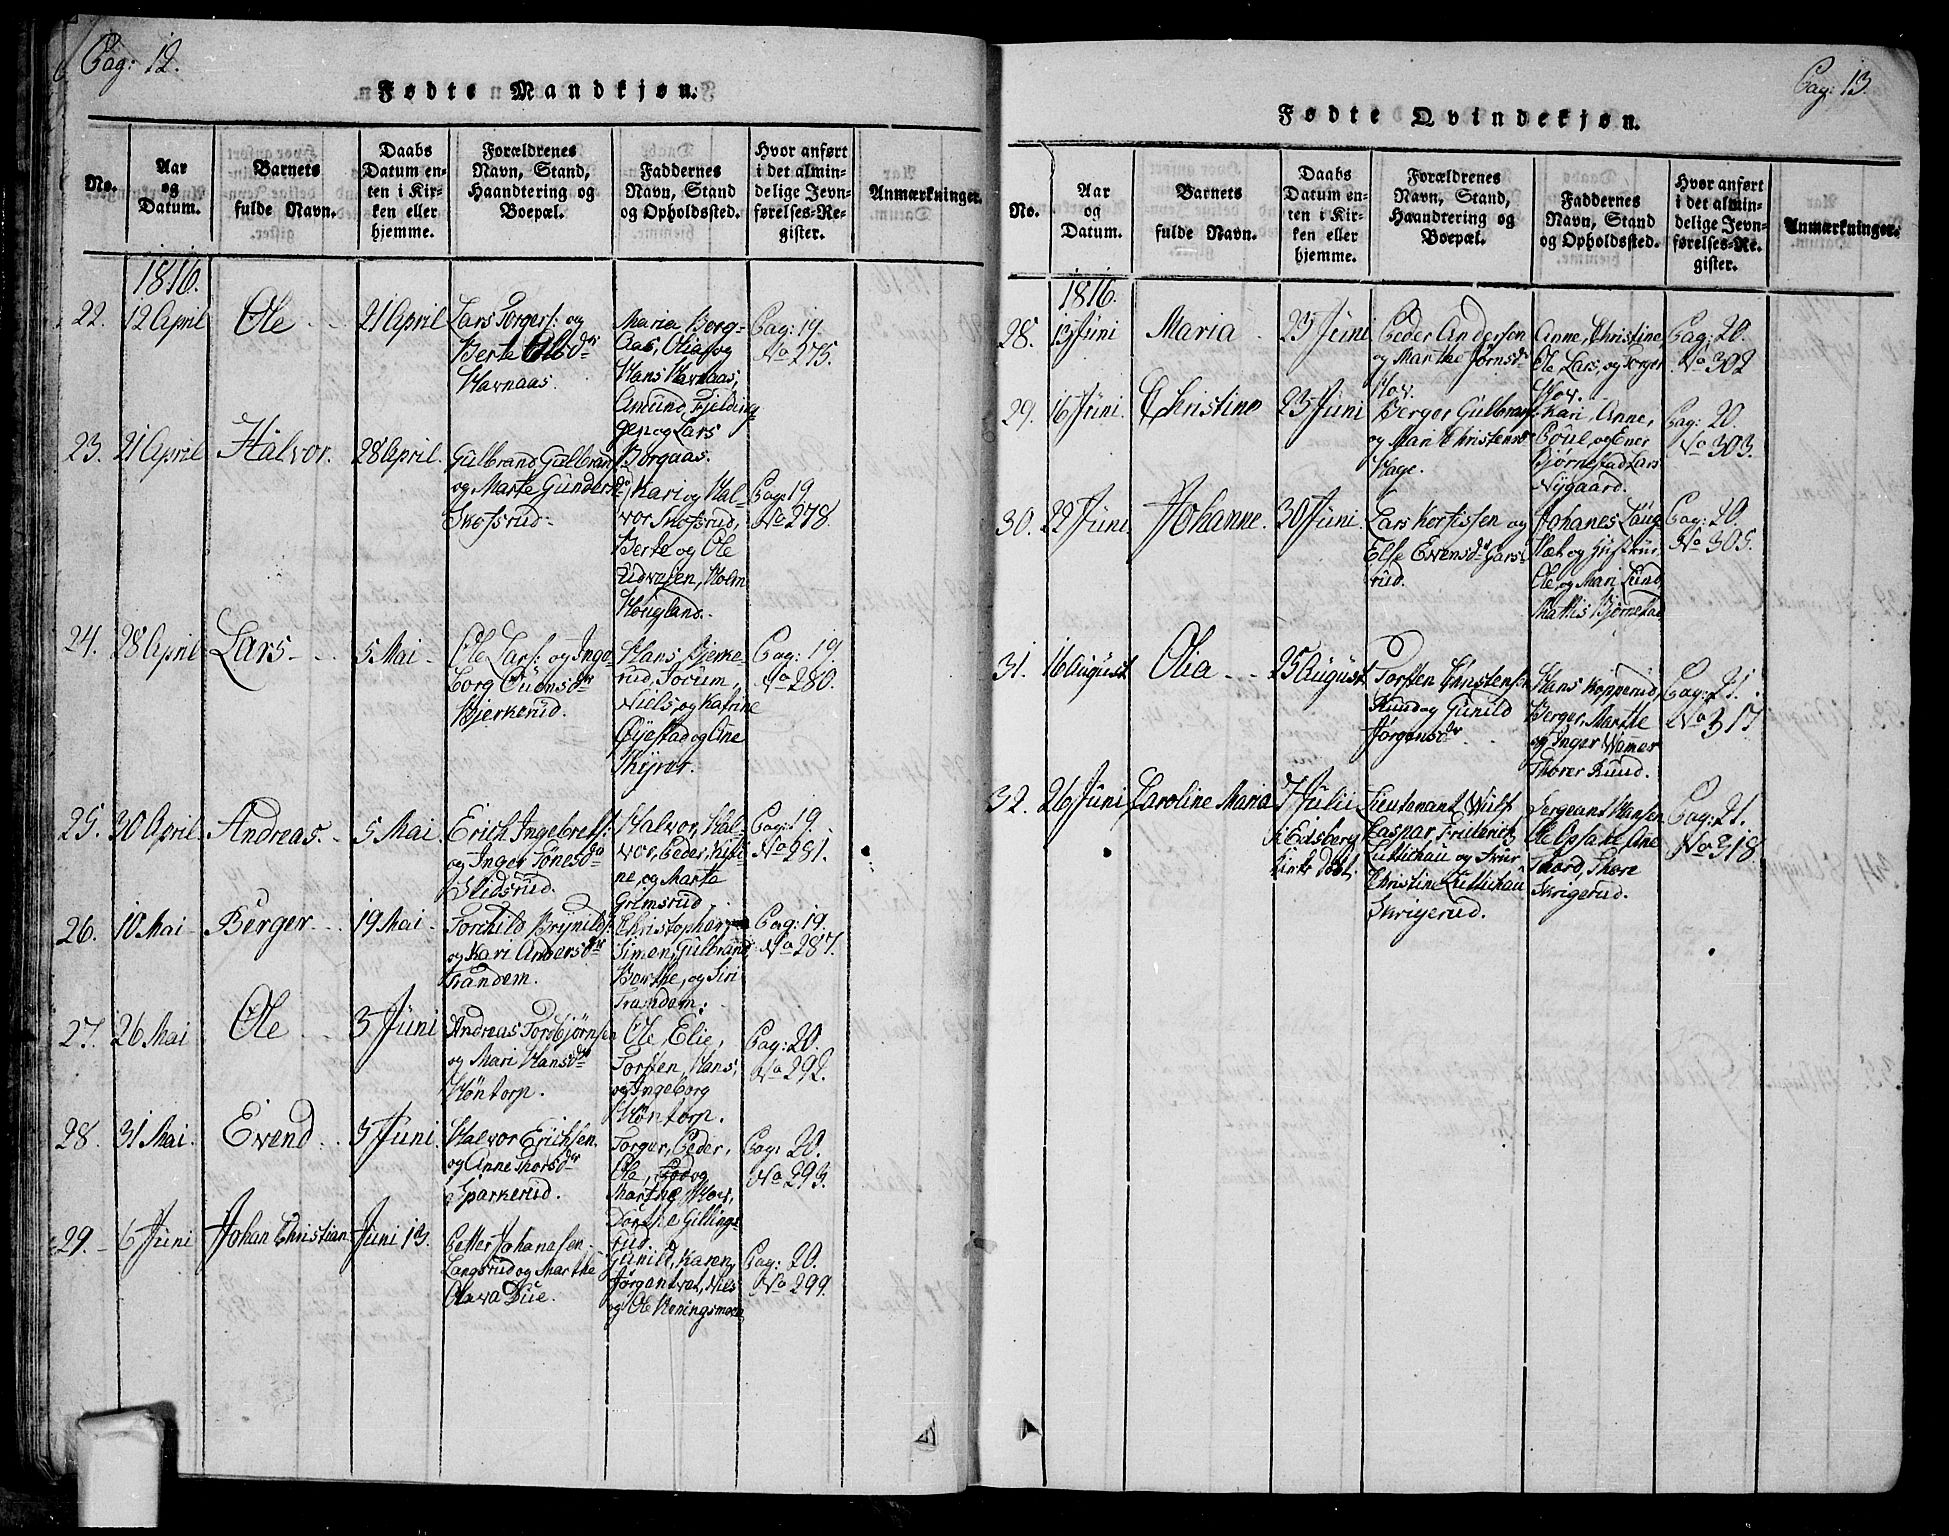 Pag: 12.
Fødte Mandkjøn.
No.
Aar
og
Datum.
Barnets
fulde Navn.
Daabs
Datum en-
ten i Kir-
ken eller
hjemme.
Forældrenes
Navn, Stand,
Haandtering og
Boepæl.
Faddernes
Navn, Stand
og Opholdssted.
Hvor anført
i det almin-
delige Jevn-
førelses-Re-
gister.
Anmærkninger.
1816.
22.
12 April
Ole
21 April
Lars Torgers: og
Berte Olsdr
Havnaas.
Maria Borg-
Aas, Olia og
Hans Havnaas,
Amund Fjelding-
gen og Lars
Borgaas.
Pag: 19.
No 275.
23.
21 April
Halvor.
28 April.
Gulbrand Gulbran
og Marte Gundersd
Skofsrud.
Kari og Hal-
vor Skofsrud,
Berte og Ole
Holm
Hougland.
Pag: 19
No 278.
24.
28 April
Lars
5 Mai
Ole Lars: og Inge-
borg
Bjerkerud.
Hans Bjerke-
rud, Jocum,
Niels, og Katrine
Øyestad og Ane
Pag: 19.
No 280.
25.
30 April.
Andreas.
5 Mai
Erich Ingebrets:
og Inger Tønesdr
Slidsrud.
Halvor, Hal-
vor, Peder, Kisti-
ne, og Marte
Grimsrud
Pag: 19.
No 281.
26.
10 Mai
Berger
19 Mai
Torchild Brynilds:
og Kari Andersdr
Trandem.
Christopher,
Simen, Gulbrand
Borthe, og Siri
Trandem.
Pag: 19.
No 287.
27.
26 Mai
Ole
3 Juni
Andreas Torbjørnsen
og Mari Hansdr
Høntorp.
Ole, Elie,
Torsten, Hans,
og Ingeborg
Høntorp.
Pag: 20.
No 292.
28.
31 Mai.
Evend
3 Juni.
Halvor Erichsen
og Anne Thorsdr
Sparkerud.
Torger, Peder,
Ole, og
Marthe Hov,
Dorthe Gillings-
rud.
Pag: 20.
No 293.
29.
6 Juni
Johan Christian
Juni 13.
Petter Johansen
Langsrud og Marthe
Olava Due.
Gunild, Karen,
Jørgen Niels
og Ole Koningsmoen
Pag: 20.
No 299.
Pag: 13.
Fødte Qvindekjøn.
No.
Aar
og
Datum.
Barnets
fulde Navn.
Daabs
Datum en-
ten i Kir-
ken eller
hjemme.
Forældrenes
Navn, Stand,
Haandtering og
Boepæl.
Faddernes
Navn, Stand
og Opholdssted.
Hvor anført
i det almin-
delige Jevn-
førelses-Re-
gister.
Anmærkninger.
1816.
28.
13 Juni
Maria
23 Juni
Peder Andersen
og Marthe Jørnsdr
Hov.
Anne, Christine,
Ole, Lars, og Torger
Hov.
Pag: 20.
No 302
29.
16 Juni.
Christine
23 Juni
Berger Gulbran
og Mari Christens
Hage.
Kari, Anne,
Poul, og Ener
Bjørnestad Lars
Nygaard.
Pag: 20.
No 303.
30.
22 Juni
Johanne.
30 Juni.
Lars Kortissen og
Else Evensdr Gars-
rud.
Johanes Laug-
og Hustru,
Ole, og Mari Lund
Mathis Bjørnestad
Pag: 20.
No 305.
31.
16 August
Olia
25 August
Torsten Christensen
Ruud og Gunild
Jørgensdr
Hans Kopperud,
Berger, Marthe
og Inger Wamer
Thorer Ruud.
Pag: 21.
No 317
32.
26 Juni
Caroline Maria
7 Julii
i Eidsberg
Kirke døbt.
Lieutenant Wulf
Caspar, Friderich
Luttichau og Frue
Christine Luttichau
Skrigerud.
Sergeant Hansen
Ole Opsahl, Ane
Thord, Thore
Skrigerud.
Pag: 21.
No 318